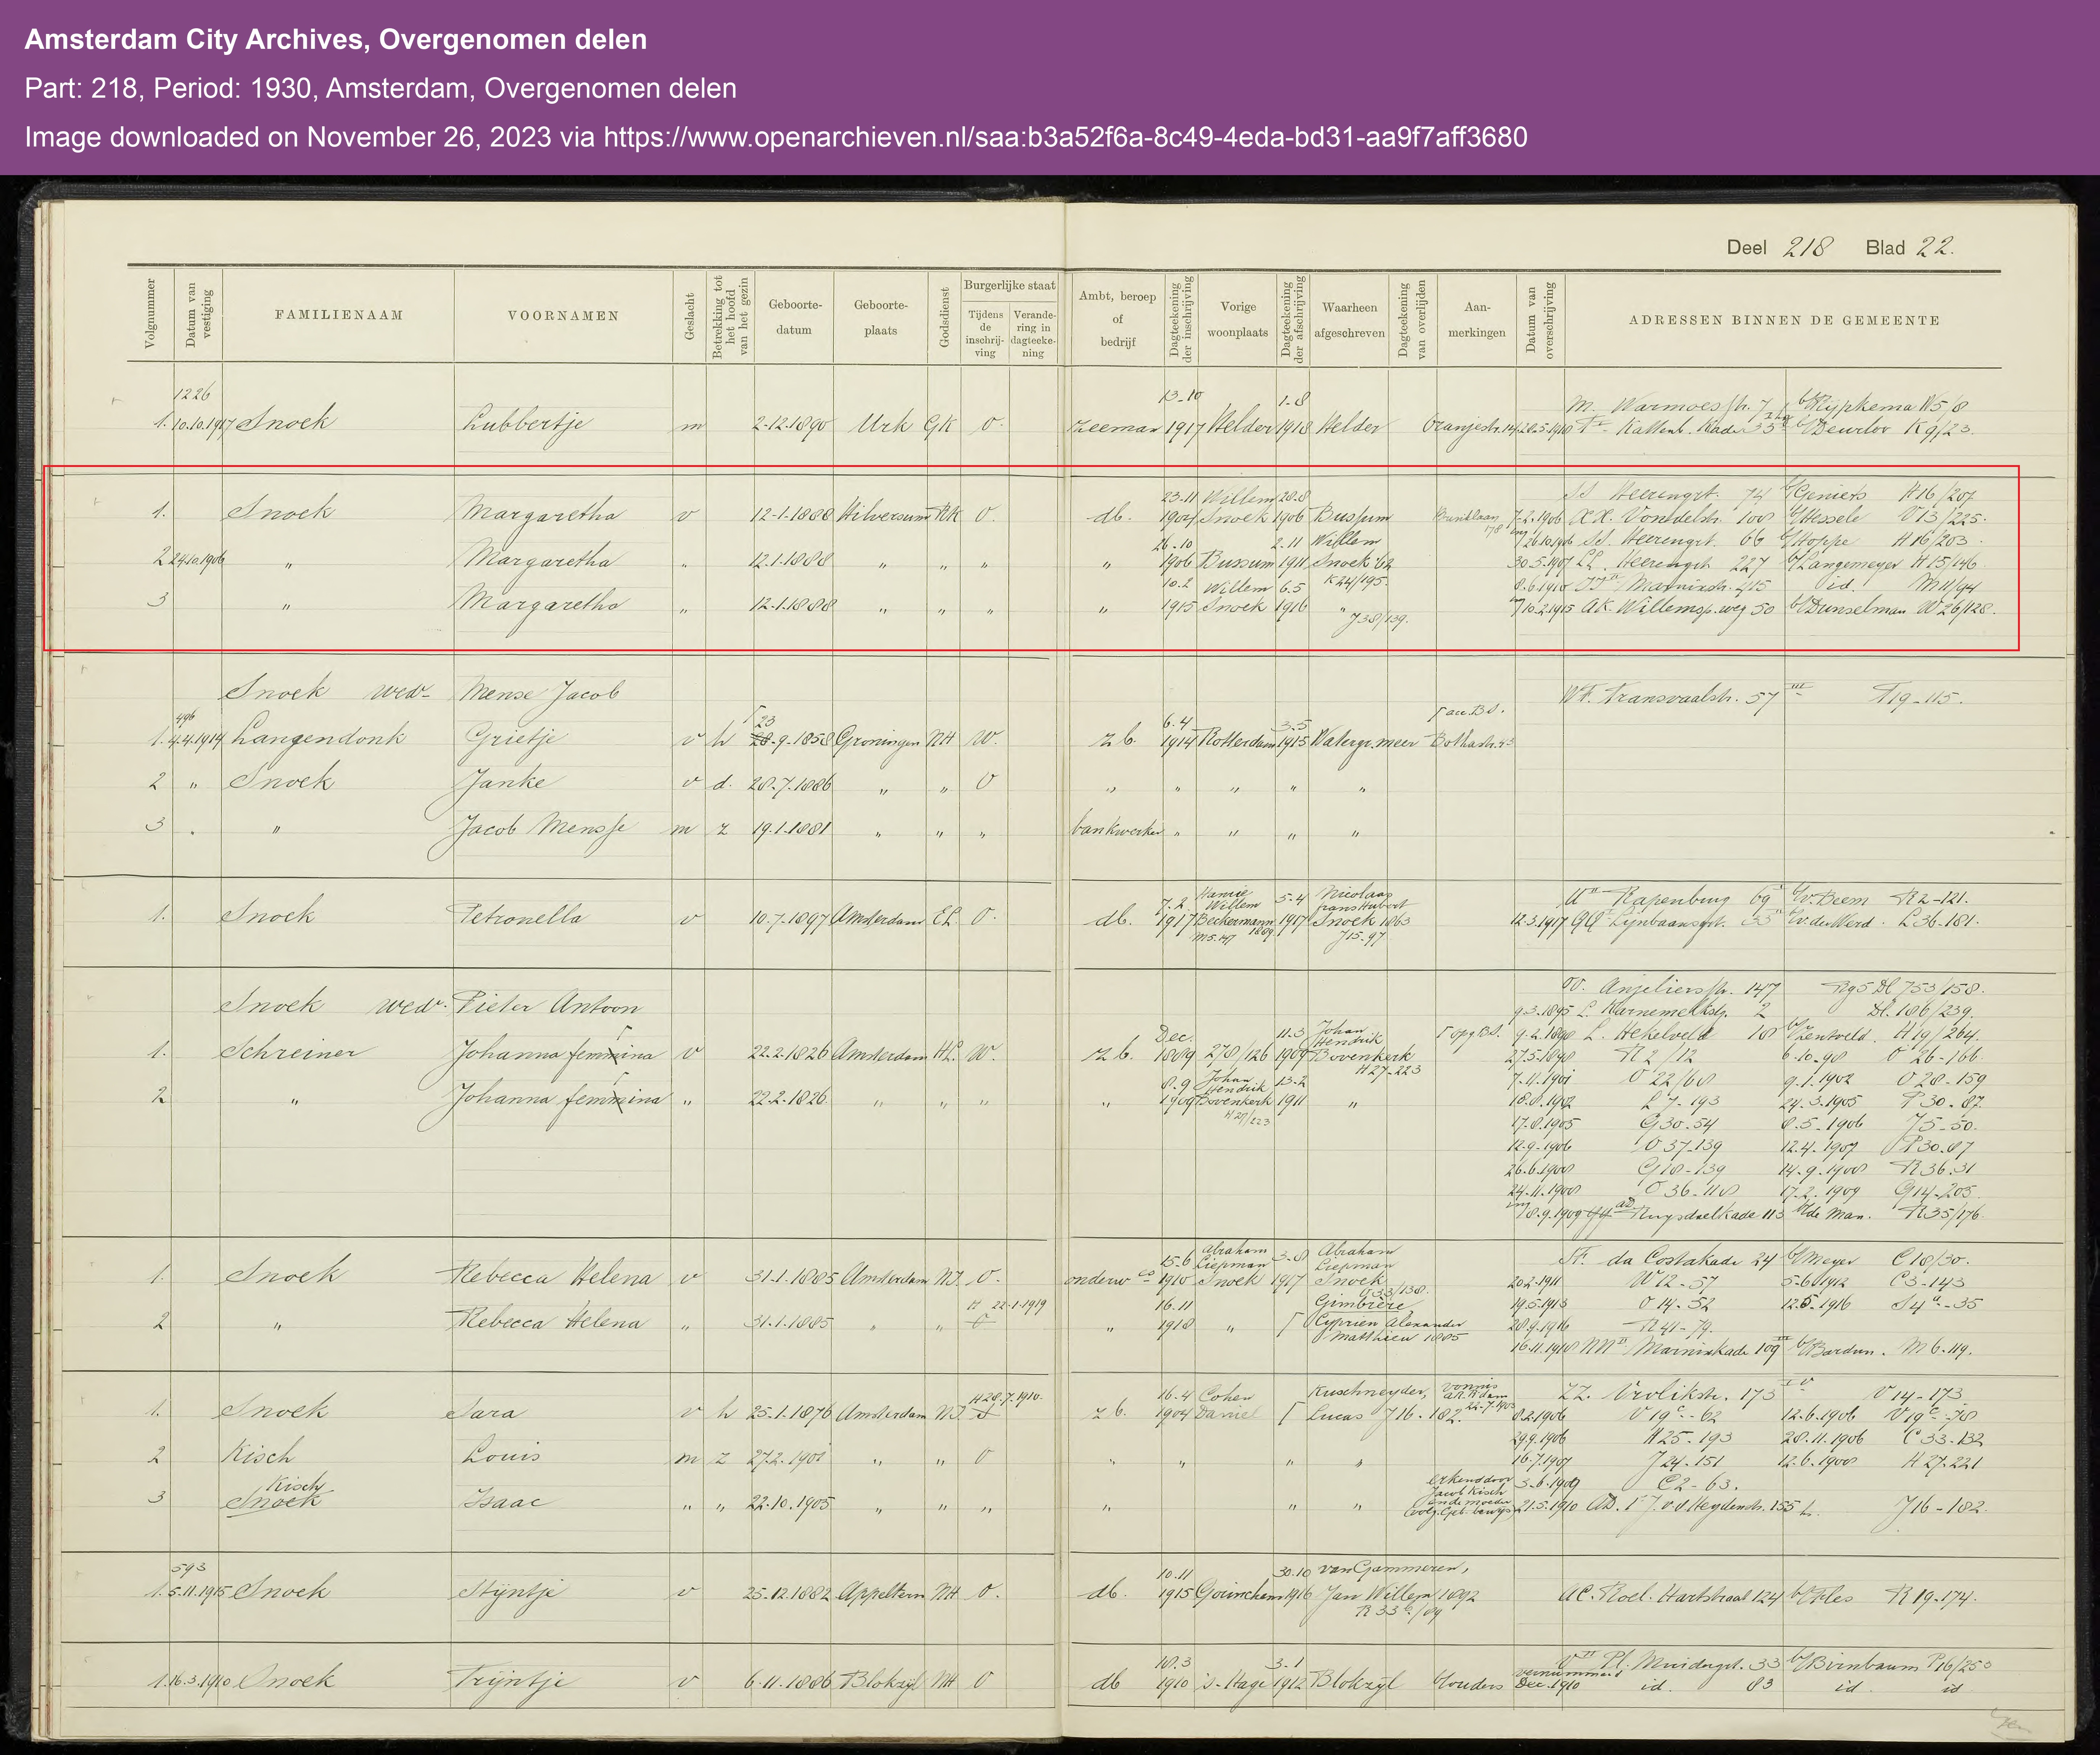 Amsterdam City Archives, Overgenomen delen
Part: 218, Period: 1930, Amsterdam, Overgenomen delen
Image downloaded on November 26, 2023 via https://www.openarchieven.nl/saa:b3a52f6a-8c49-4eda-bd31-aa9f7aff3680
Deel 218 Blad 22.
Volgnummer
Datum van vestiging
FAMILIENAAM
VOORNAMEN
Geslacht
Betrekking tot het hoofd van het gezin
Geboorte-datum
Geboorte-plaats
Godsdienst
Burgerlijke staat
Tijdens de inschrij-ving
Verande-ring in dagteeke-ning
Ambt, beroep of bedrijf
Dagteekening der inschrijving
Vorige woonplaats
Dagteekening der afschrijving
Waarheen afgeschreven
Dagteekening van overlijden
Aan-merkingen
Datum van overschrijving
ADRESSEN BINNEN DE GEMEENTE
1226 13-10 1-8 M. Warmoesstr. 7 b/Rijpkema N5/8
1. 10.10.1917 Snoek Lubbertje m 2-12-1890 Urk GK O. zeeman 1917 Helder 1918 Helder Oranjestr. 28.5.1918 Kattenb. Kade 35 K9/23.
23-11 Willem 28-8 SS Heerengrt. 74 b/Geniets H16/207
1. Snoek Margaretha v 12-1-1888 Hilversum RK O. db. 1904 Snoek 1906 Bussum 7-2-1906 Vondelstr. 108 b/Hessele V13/225.
26-10 2-11 Willem 26.10.1906 SS. Heerengrt. 66 b/Hoppe H16/203.
2 24.10.1906 " Margaretha " 12.1.1888 " " " " 1906 Bussum 1911 Snoek '62 30.5.1907 LL. Heerengrt. 227 b/Langemeyer H15/146
10.2 Willem 6.5 K24/195. 8.6.1910 Marnixstr. 415 id. M11/94
3 " Margaretha " 12-1-1888 " " " " 1915 Snoek 1916 " 10.2.1915 AK. Willemsp.weg 50 b/Dunselman W26/128.
J38/139.
Snoek wedr Mense Jacob WF. Transvaalstr. 57 III T19-115.
496 23 6.4 3-5
1. 4.4.1914 Langendonk Grietje v h 28-9-1858 Groningen NH W. z.b. 1914 Rotterdam 1915 Watergr.meer Bothastr. 43
2 " Snoek Janke v d. 28-7-1886 " " O " " " " "
3 . " Jacob Mensje m z 19-1-1881 " " " bankwerker " " " "
7.2 Willem 5-4 Nicolaas Rapenburg 69 b/v. Beem R2-121.
1. Snoek Petronella v 10-7-1897 Amsterdam EL O. db. 1917 Beekermann 1917 Snoek 1863 12.3.1917 Lijnbaansgrt. 35 b/v.der Werd. L36-181.
M5.47 1889 J15-97
Snoek wedr. Pieter Antoon OO. Anjeliersstr. 147 Rg5 Dl 753/158.
9.3.1895 L. Karnemelkstg. 2 Dl. 186/239.
Dec. 11.3 Johan Hendrik 9-2-1898 L. Hekelveld 18 b/Zentveld. H19/264.
1. Schreiner Johanna femmina v 22-2-1826 Amsterdam HL. W. z.b. 1889 278/126 1909 Bovenkerk 27.5.1898 R2/12 6-10-98 O 26-166
H27-223
8.9 Johan Hendrik 13-2 7-11-1901 O 22/68 9-1-1902 O 28-159
2 " Johanna femmina " 22-2-1826 " " " " 1909 Bovenkerk 1911 " 18.8.1902 L7-193 24-3-1905 P30-87.
H27/223 17.8.1905 G30-54 8.5-1906 J5-50.
12-9-1906 O 37-139 12.4.1907 P30.87
26.6.1908 G18-139 14-9-1908 R36.31
24-11-1908 O 36-118 17.2.1909 G14-205
8.9.1909 Ruysdaelkade 113 b/de Man. R35/176.
15-6 Abraham Liepman 3-8 Abraham Liepman da Costakade 24 b/Meyer C18/30.
1. Snoek Rebecca Helena v 31-1-1885 Amsterdam NI. O. onderw. 1910 Snoek 1917 Snoek 20.2.1911 W12-57 5-6-1912 C3-143
H 22-1-1919 16-11 Gimbrère, 19.5.1913 O 14-52 12.5-1916 S4a-35
2 " Rebecca Helena " 31-1-1885 " " O " 1918 " Cyprien Alexander 28.9.1916 R41-79.
Matthieu 1885 16.11.1918 Marnixkade 109 III b/Bardun. M6-119.
H 28-7-1910. 16-4 Cohen Kuschneyder, vonnis ZZ. Vrolikstr. 173 V14-173
1. Snoek Sara v h 25-1-1876 Amsterdam NI. z.b. 1904 Daniel Lucas J16-182. 8.2.1906 V19c-62 12-6-1906 V19c-78
29.9.1906 H25-193 28.11.1906 C33-132
2 Kisch Louis m z 27.2.1901 " " O " " " " 16-7-1907 J24-151 12-6-1908 H27-221
Kisch erkend door Jacob Kisch 3-6-1909 C2-63.
3 Snoek Isaac " " 22-10-1905 " " " " " " 21.5.1910 J.v.d Heydenstr. 155 J16-182.
593 10.11 30.10 van Gammeren,
1. 5.11.1915 Snoek Stijntje v 25-12-1882 Appeltern NH O. db. 1915 Gorinchem 1916 Jan Willem 1892 AC. Roel. Hartstraat 124 R19-174.
18.3 3-1 Pl. Muidergrt. 33 b/Birnbaum P16/253
1. 16.3.1910 Snoek Trijntje v 6-11-1886 Blokzijl NH O db 1910 's-Hage 1912 Blokzijl Ouders vernummerd Dec. 1910 id. 83 id id